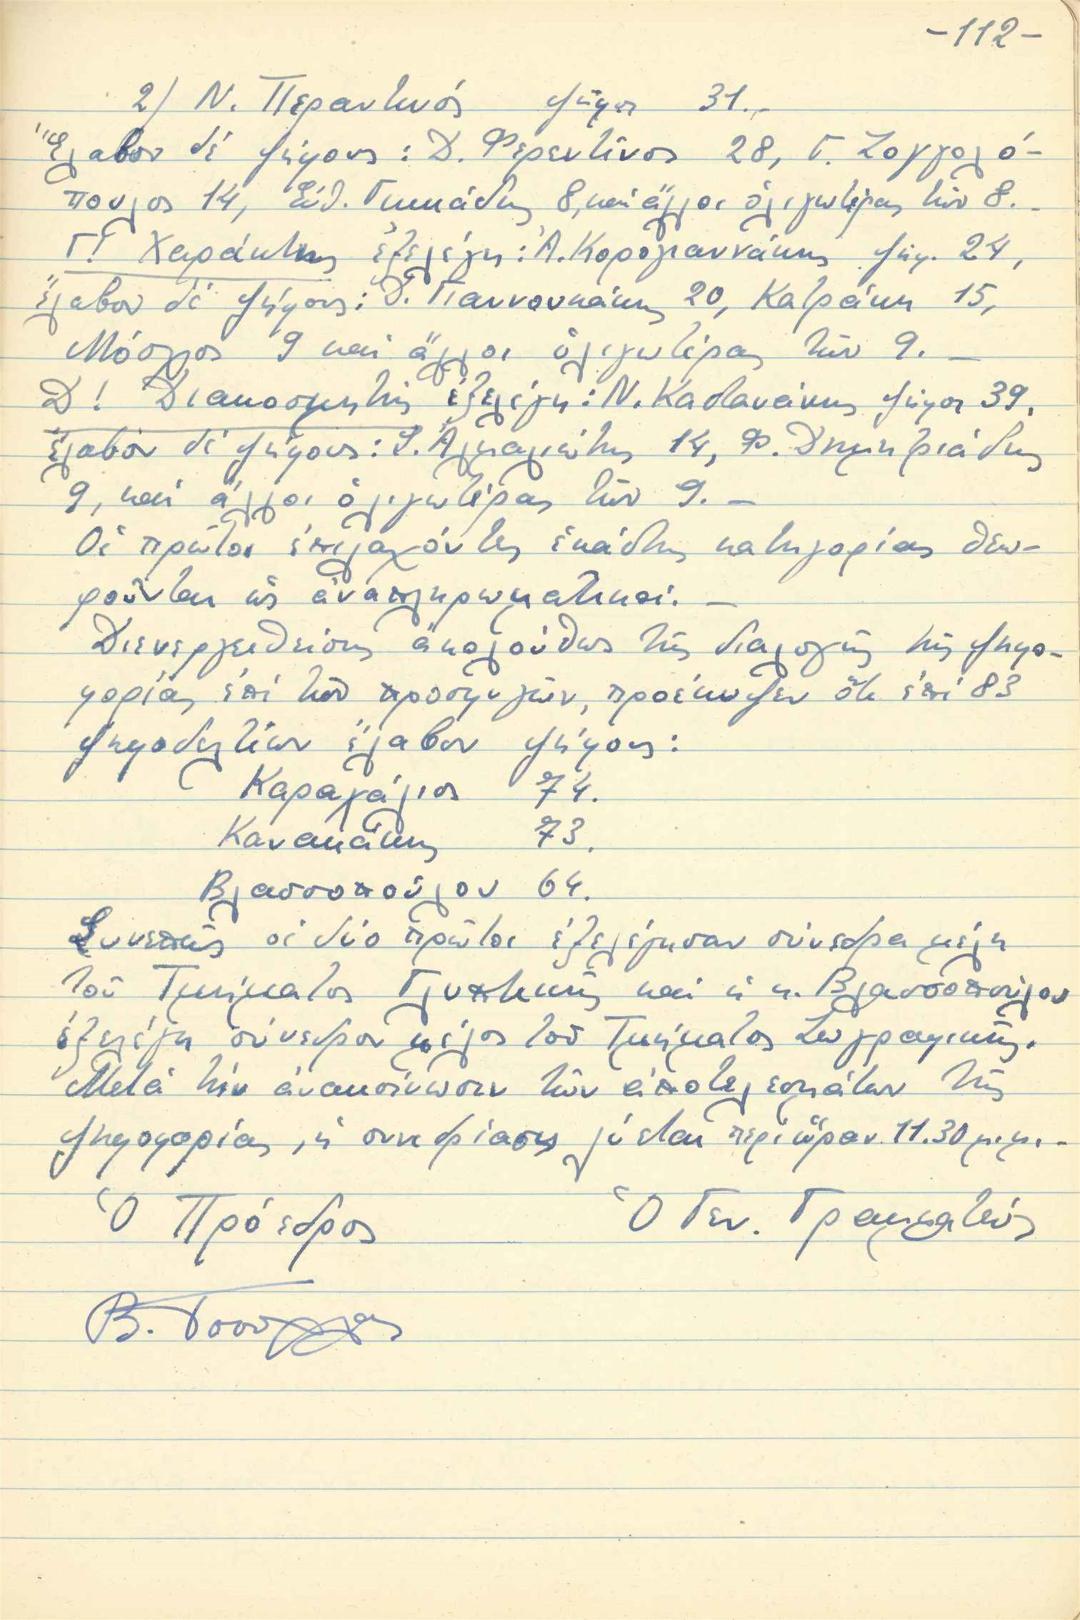 -112-
2/ Ν. Περαντινός ψῆφοι 31.-
Ἔλαβον δέ ψήφους: Δ. Φερεντῖνος 28, Γ. Ζογγολό-
πουλος 14, Εὐθ. 8, καί ἄλλοι ὀλιγωτέρας τῶν 8.-
Γ! Χαράκτης ἐξελέγη: Ἀ. Κορογιαννάκης ψήφ. 24,
ἔλαβον δέ ψήφους: Δ. Γιαννουκάκης 20, Κατράκη 15,
Μόσχος 9 καί ἄλλοι ὀλιγωτέρας τῶν 9.-
Δ! Διακοσμητής ἐξελέγη: Ν. Καστανάκης ψῆφοι 39.
ἔλαβον δέ ψήφους: Ἀλμαλιώτης 14, Φ. Δημητριάδης
9, καί ἄλλοι ὀλιγωτέρας τῶν 9.-
Οἱ πρῶτοι ἐπιλαχόντες ἑκάστης κατηγορίας θεω-
ροῦνται ὡς ἀναπληρωματικοί.-
Διενεργηθείσης ἀκολούθως τῆς διαλογῆς τῆς ψηφο-
φορίας ἐπί τῶν προσφυγῶν, προέκυψεν ὅτι ἐπί 83
ψηφοδελτίων ἔλαβον ψήφους:
Καραχάλιος 74.
Κανακάκης 73.
Βλασσοπούλου 64.
Συνεπῶς οἱ δύο πρῶτοι ἐξελέγησαν σύνεδρα μέλη
τοῦ Τμήματος Γλυπτικῆς καί ἡ κ. Βλασσοπούλου
ἐξελέγη σύνεδρον μέλος τοῦ Τμήματος Ζωγραφικῆς.
Μετά τήν ἀνακοίνωσιν τῶν ἀποτελεσμάτων τῆς
ψηφοφορίας, ἡ συνεδρίασις λύεται περί ὥραν 11.30 μ.μ.-
Ὁ Πρόεδρος Ὁ Γεν. Γραμματεύς
Β.